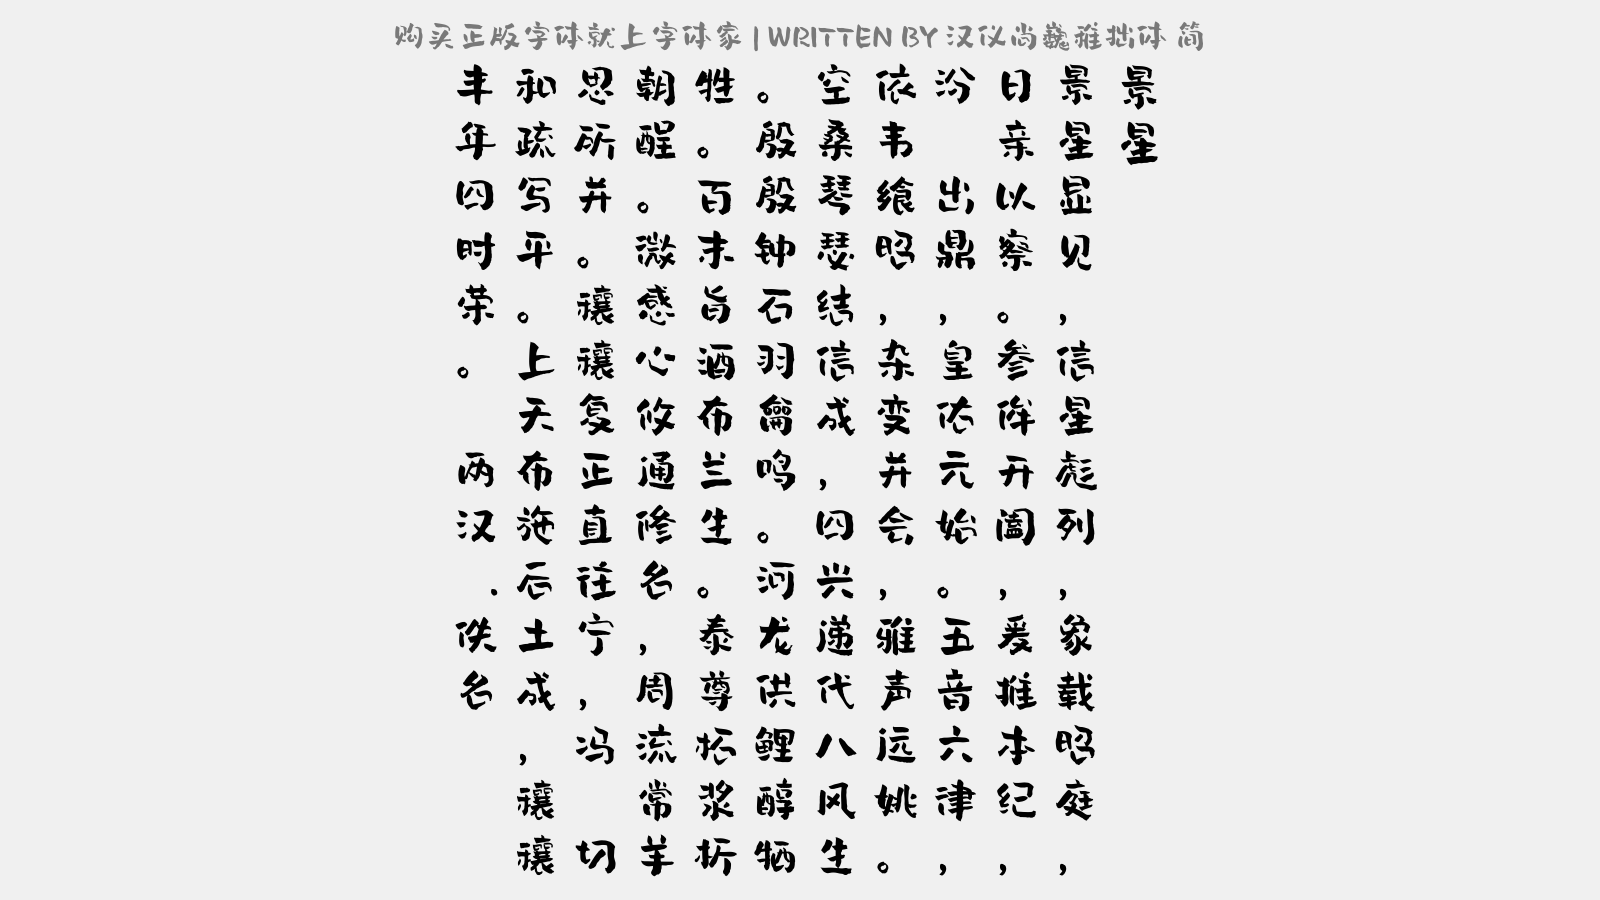 购买正版字体就上字体家 | WRITTEN BY 汉仪尚巍雅拙体 简
景星
景星显见，信星彪列，象载昭庭，
日亲以察。参侔开阖，爰推本纪，
汾 出鼎，皇佑元始。五音六律，
依韦飨昭，杂变并会，雅声远姚。
空桑琴瑟结信成，四兴递代八风生
。殷殷钟石羽龠鸣。河龙供鲤醇牺
牲。百末旨酒布兰生。泰尊柘浆析
朝酲。微感心攸通修名，周流常羊
思所并。穰穰复正直往宁，冯 切
和疏写平。上天布施后土成，穰穰
丰年四时荣。 两汉.佚名